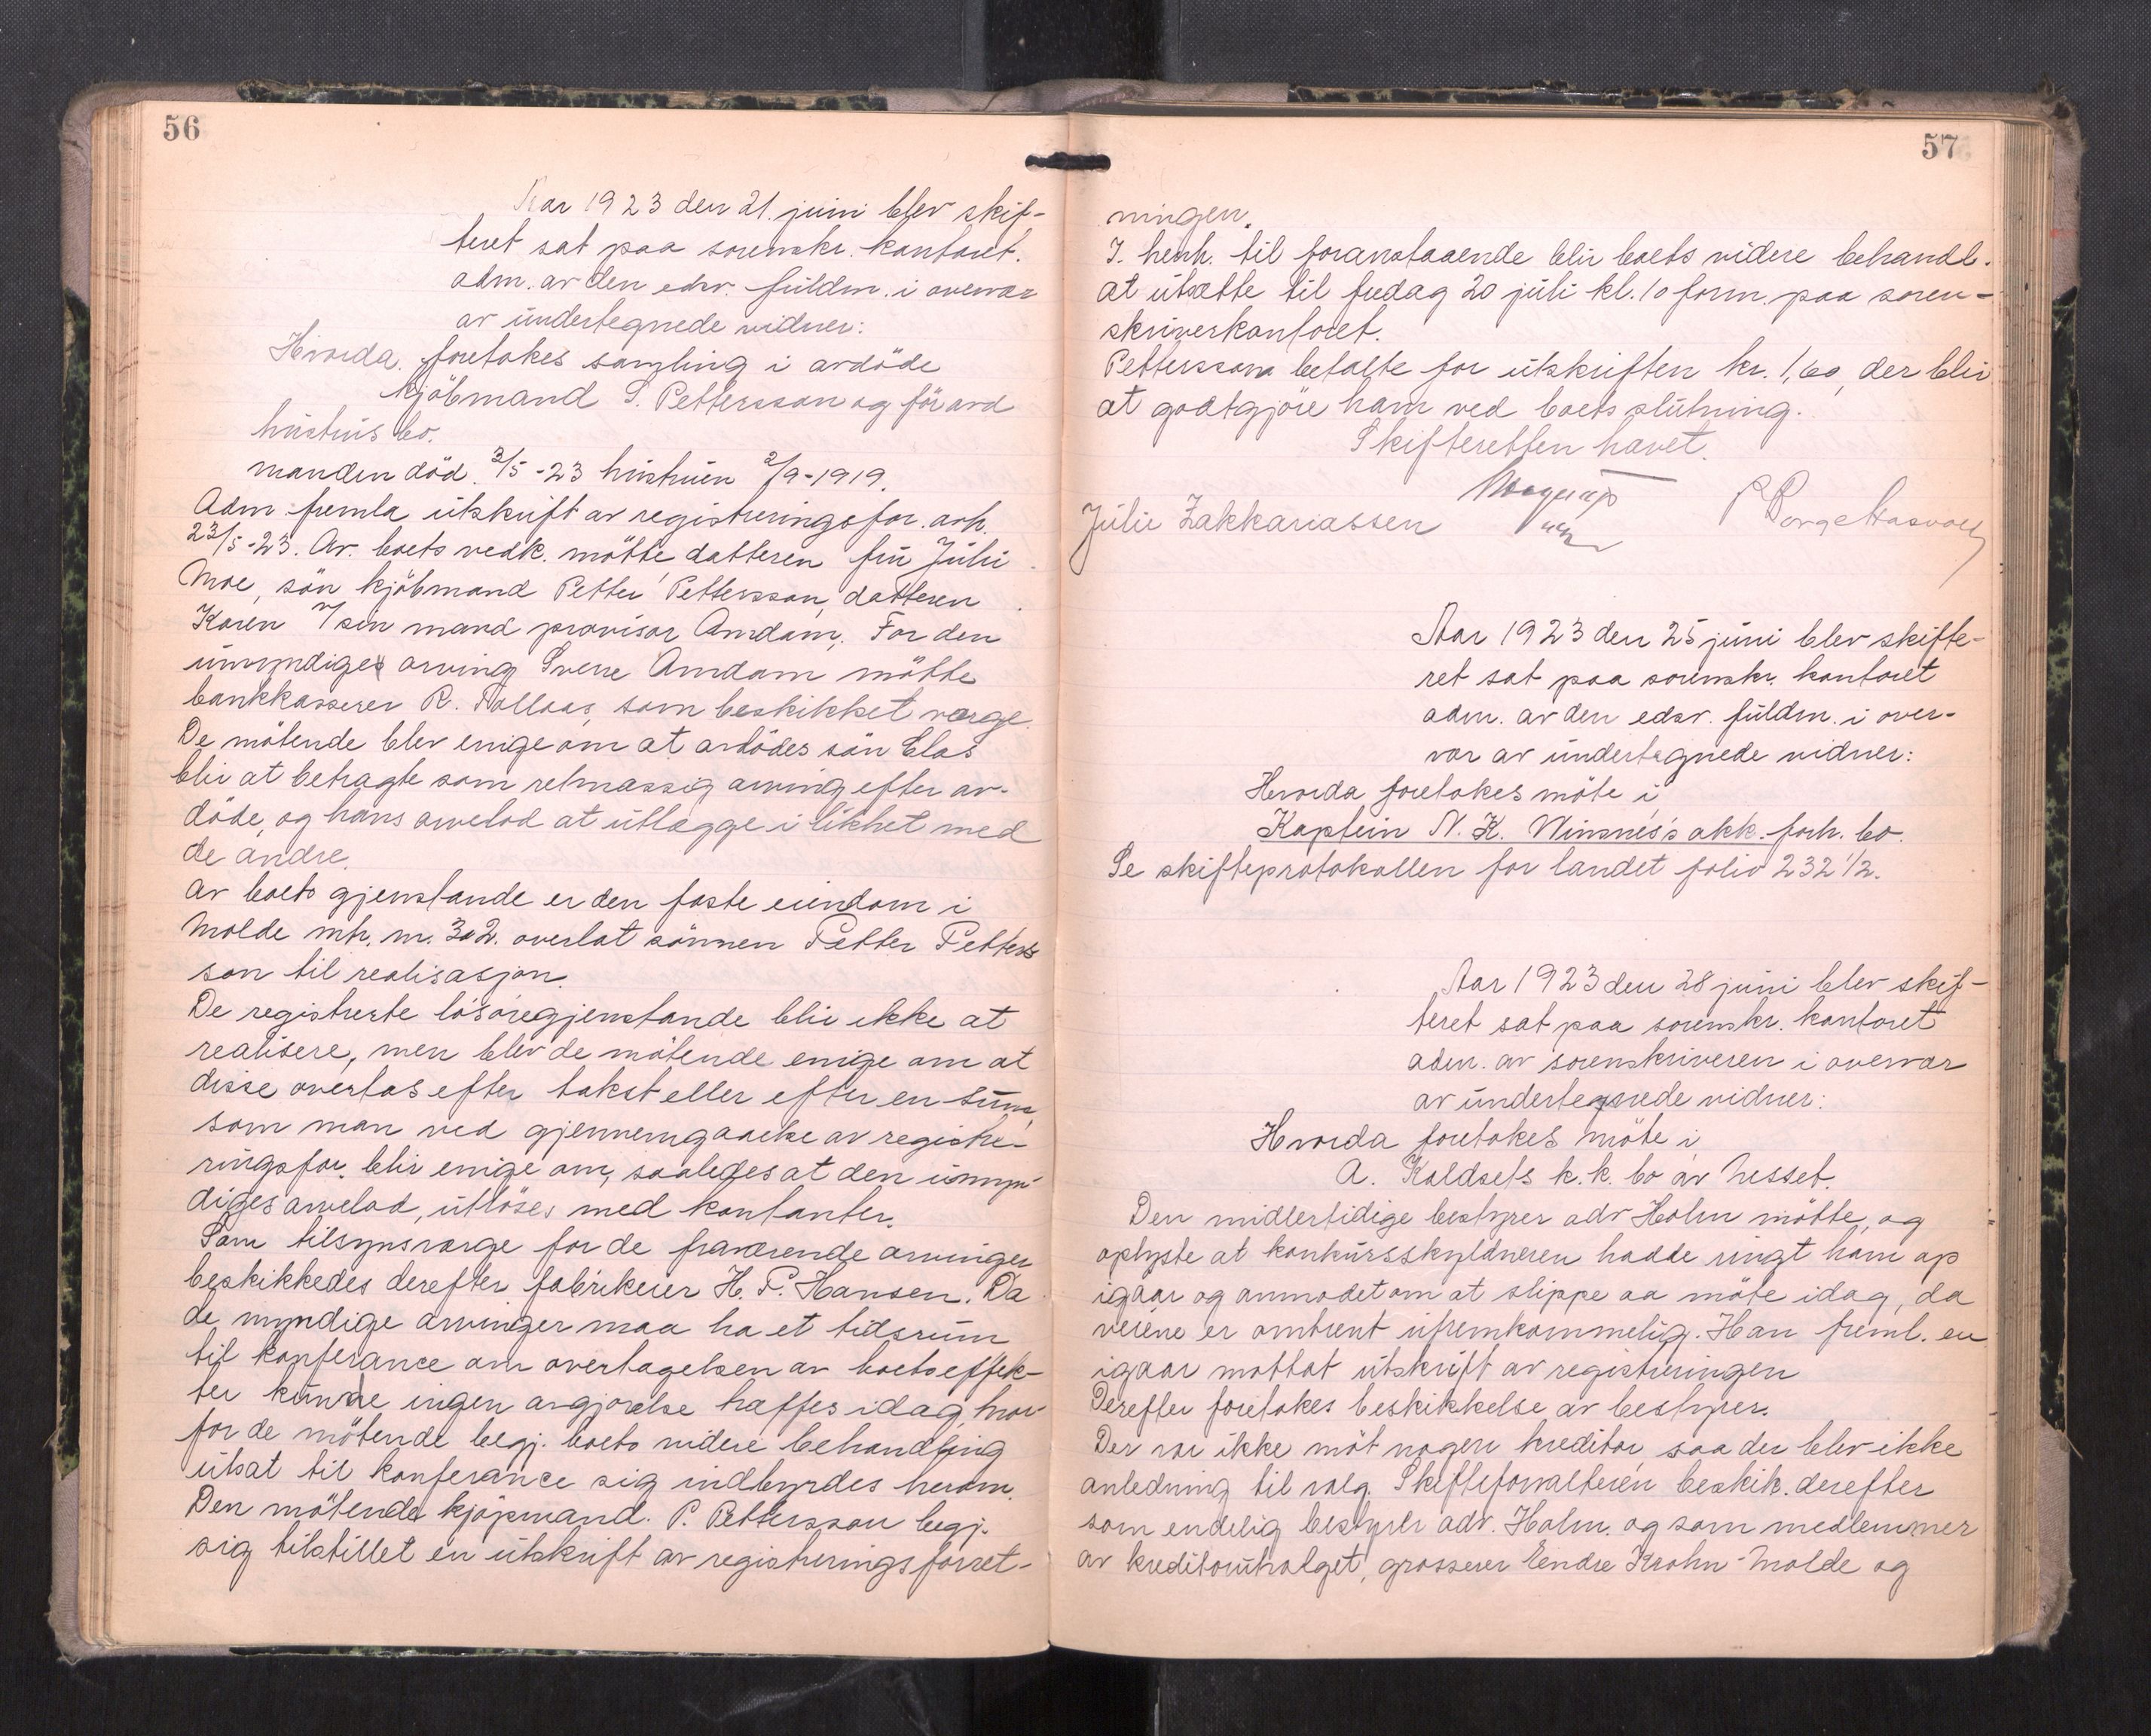 56
Aar 1923 den 21. juni blev skif-
teret sat paa sorenskr. kontoret.
adm. av den edsv. fuldm. i overvær
av undertegnede vidner:
Hvorda foretokes samling i avdöde
kjöbmand S. Pettersson og för avd
hustrus bo.
manden död 3/5-23 hustruen 2/9-1919.
Adm. fremla utskrift av registreringsfor. avh.
23/5-23. Av. boets vedk. mötte datteren fru Juli
Moe, sön kjöbmand Petter Pettersson, datteren
Karen v/ sin mand provisor Amdam. For den
umyndige arving Sverre Amdam mötte
bankkasserer R. Tollaas som beskikket verge.
De mötende blev enige om at avdödes sön Elas
blir at betragte som retmæssig arving efter av-
döde, og hans arvelod at utlægge i likhet med
de andre.
Av boets gjenstande er den faste eiendom i
Molde mtr. nr. 302. overlat sönnen Petter Petters-
son til realisasjon.
De registrerte lösöregjenstande blir ikke at
realisere, men blev de mötende enige om at
disse overtas efter takst eller efter en sum,
som man ved gjennemgaaelse av registre-
ringsfor. blir enige om, saaledes at den umyn-
diges arvelod, utlöses med kontanter.
Som tilsynsværge for de fraværende arvinger
beskikkedes derefter fabrikeier H. P. Hansen. Da
de myndige arvinger maa ha et tidsrum
til konferance om overtagelsen av boets effek-
ter kunde ingen avgjörelse træffes idag, hvor-
for de mötende begj. boets videre behandling
utsat til konferance sig indbyrdes herom.
Den mötende kjöpmand. P. Pettersson begj.
sig tilstillet en utskrift av registreringsforret-
57
ningen.
I. henh. til foranstaaende blir boets videre behandl.
at utsætte til fredag 20 juli kl. 10 form. paa soren-
skriverkontoret.
Pettersson betalte for utskriften kr. 1,60, der blir
at godtgjöre ham ved boets slutning.
Skifteretten hævet.
Julie Zakkariassen
Aar 1923 den 25 juni blev skifte-
ret sat paa sorenskr. kontoret
adm. av den edsv. fuldm. i over-
vær av undertegnede vidner:
Hvorda foretokes möte i
Kaptein N. K. Winsnes's akk. forh. bo.
Se skifteprotokollen for landet folio 232 1/2.
Aar 1923 den 28 juni blev skif-
teret sat paa sorenskr. kontoret
adm. av sorenskriveren i overvær
av undertegnede vidner:
Hvorda foretokes möte i
A. Koldsets k.k. bo av Nesset.
Den midlertidige bestyrer adv Holm mötte, og
oplyste at konkursskyldneren hadde ringt ham op
igaar og anmodet om at slippe aa möte idag, da
veiene er omtrent ufremkommelig. Han freml. en
igaar mottat utskrift av registreringen
Derefter foretokes beskikkelse av bestyrer.
Der var ikke möt nogen kreditor saa der blev ikke
anledning til valg. Skifteforvalteren beskik. derefter
som endelig bestyrer adv. Holm. og som medlemmer
av kreditorutvalget, grosserer Eendre Krohn - Molde og